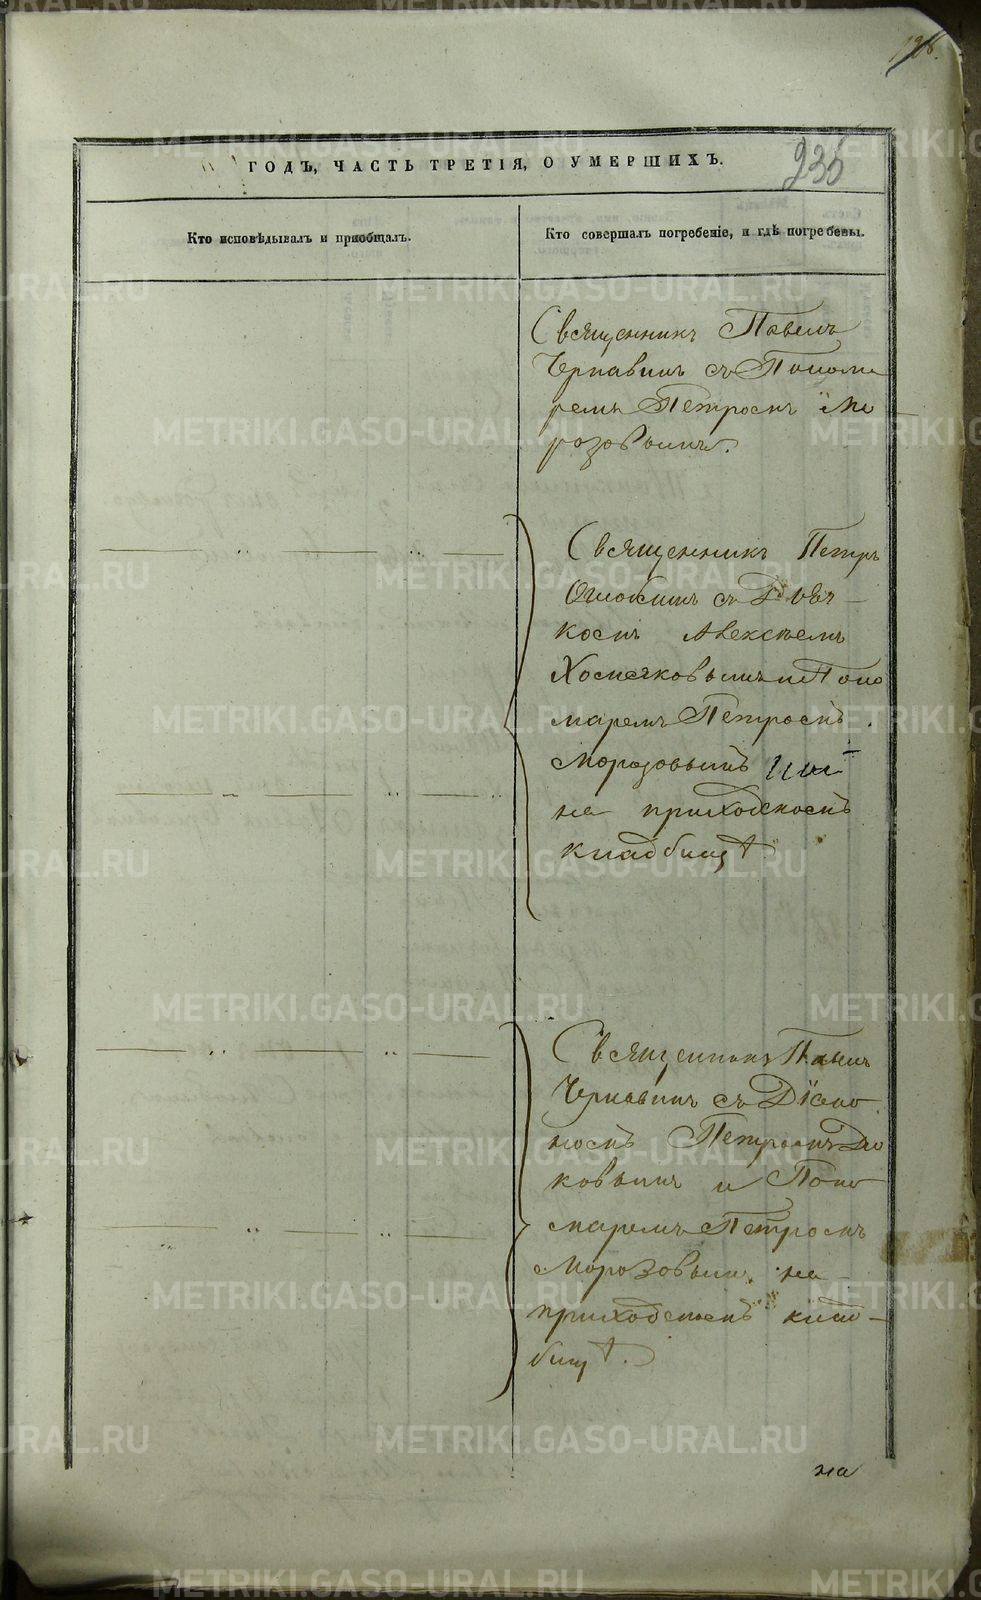 128.
235
ГОДЪ, ЧАСТЬ ТРЕТІЯ, О УМЕРШИХЪ.
Кто исповѣдывалъ и приобщалъ.
Кто совершалъ погребеніе, и гдѣ погребены.
Священникъ Павелъ
Чернавинъ съ Понома
ремъ Петромъ Мо
розовымъ.
Священникъ Петръ
съ Дьяч
комъ Алексѣемъ
Хомяковымъ и Поно
маремъ Петромъ
Морозовымъ
на приходскомъ
кладбищѣ
Священникъ Павелъ
Чернавинъ съ Діако
номъ Петромъ
ковымъ и Поно
маремъ Петромъ
Морозовым. на
приходскомъ клад-
бищѣ.
на
METRIKI.GASO-URAL.RU